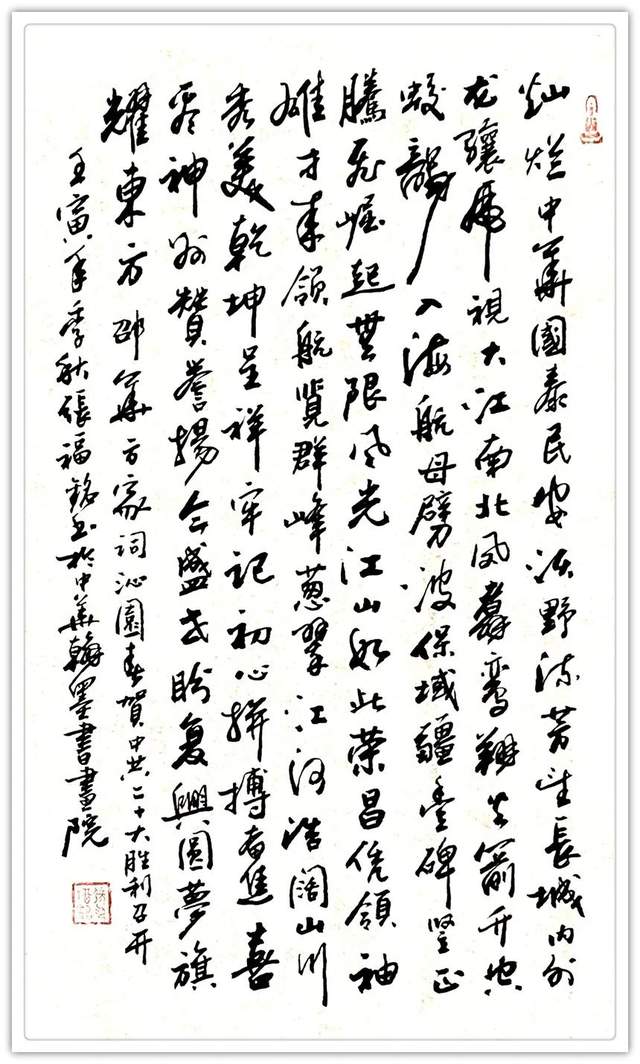 灿烂中华国泰民安沃野流芳望长城内外
龙骧虎视大江南北凤翥鸾翔火箭升空
蛟龙入海航母劈波保域疆丰碑竖正
腾飞崛起无限风光江山如此荣昌凭领袖
雄才来领航览群峰葱翠江河浩阔山川
秀美乾坤呈祥牢记初心拼搏奋进喜
看神州赞誉扬今盛世盼复兴圆梦旗
耀东方邵华方家词沁园春贺中共二十大胜利召开
壬寅年季秋张福铭书于中华翰墨书画院